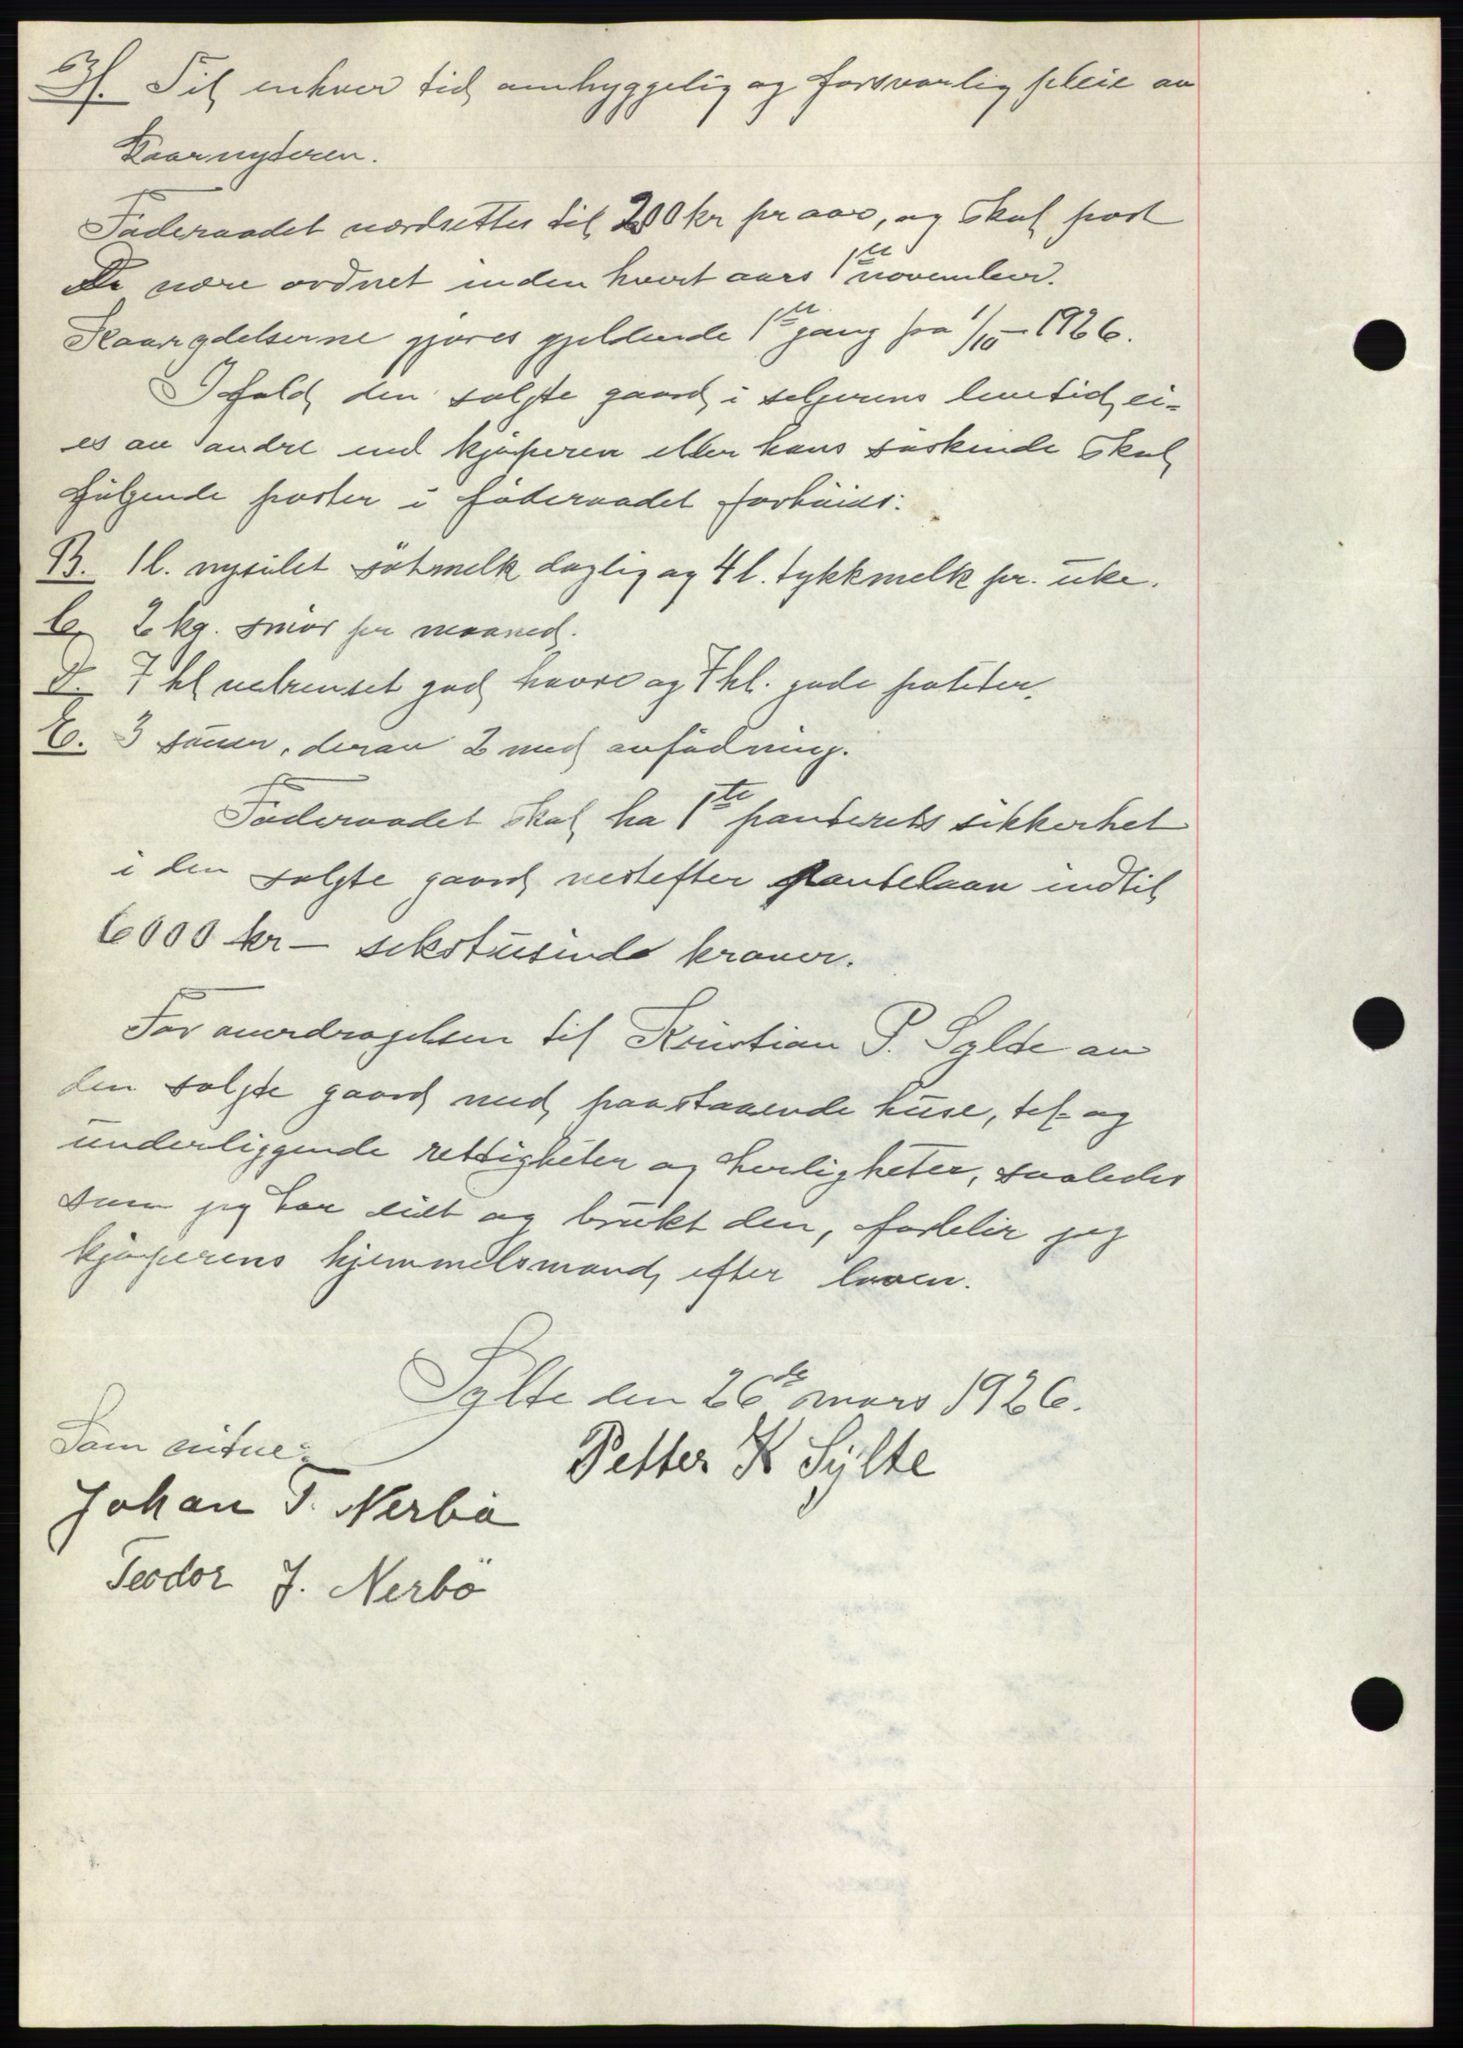 H. Til enhver tid omhyggelig og forsvarlig pleie av
kaarnyteren.
Föderaadet verdsettes til 200 kr pr aar, og skal post
D være ordnet inden hvert aars 1ste november.
Kaarydelserne gjöres gjeldende 1ste gang fra 1/10 - 1926.
Ifald den solgte gaard i selgerens levetid ei-
es av andre end kjöperen eller hans söskende skal
fölgende poster i föderaadet forhöies:
B. 1 l. nysilet sötmelk daglig og 4 l. tykkmelk pr. uke.
C. 2 kg. smör pr maaned.
D. 7 hl velrenset god havre og 7 hl. gode poteter.
E. 3 sauer, derav 2 med avfödning.
Föderaadet skal ha 1ste panterets sikkerhet
i den solgte gaard nestefter pantelaan indtil
6000 kr - sekstusinde kroner.
For overdragelsen til Kristian P. Sylte av
den solgte gaard med paastaaende huse, til- og
underliggende rettigheter og herligheter, saaledes
som jeg har eiet og brukt den, forblir jeg
kjöperens hjemmelsmand efter loven.
Sylte den 26de mars 1926.
Som vitne:
Petter K Sylte
Johan T. Nerbö
Teodor J. Nerbö